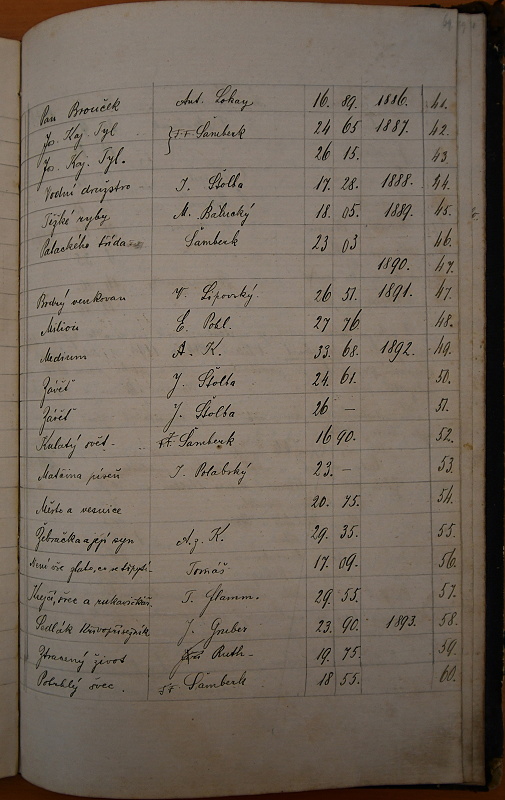 Pan Brouček Ant. Lokay 16. 89. 1886. 41.
Jos. Kaj. Tyl F. F. Šamberk 24 65 1887. 42.
Jos. Kaj. Tyl. 26 15. 43
Vodní družstvo J. Štolba 17. 28. 1888. 44.
Těžké ryby M. Bałucký 18. 05. 1889. 45.
Palackého třída Šamberk 23 03 46.
1890. 47.
Bodrý venkovan V. Lipovský. 26 51. 1891. 47.
Milion E. Pohl. 27 76 48.
Medium A. K. 33. 68. 1892. 49.
Závěť J. Štolba 24. 61. 50.
Závěť J. Štolba 26 — 51.
Kulatý svět F. F. Šamberk 16 90. 52.
Matčina píseň J. Polabský 23. — 53.
Město a vesnice 20. 75. 54.
Žebračka a její syn A. z. K. 29. 35. 55.
Není vše zlato, co se třpytí Tomáš 17. 09. 56.
Krejčí, švec a rukavičkář T. Flamm. 29. 55. 57.
Sedlák Křivopřísežník J. Gruber 23. 90. 1893. 58.
Ztracený život Ruth 19. 75. 59.
Poběhlý švec. F. F. Šamberk 18 55. 60.